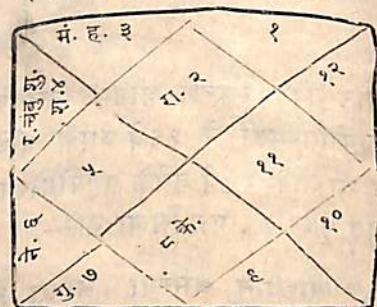 मं. ह. ३
१
र. चबु शु.
श ४
रा. २
१२
५
११
ने. ६
८ के.
१०
गु. ७
९